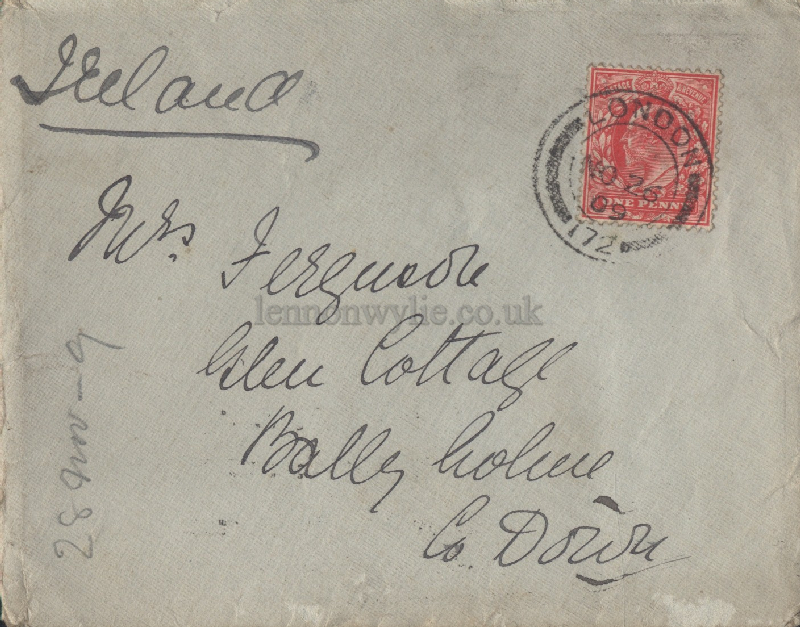 Ireland
LONDON
NO 26
09
172
ONE PENNY
Mrs Ferguson
lennonwylie.co.uk
Glen Cottage
Ballyholme
Co. Down
28 Nov-9